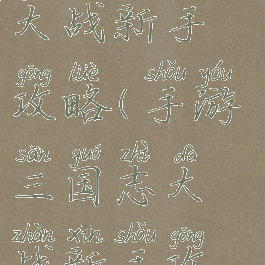 大战新手
gōng lüè shǒu yóu
攻略(手游
sān guó zhì dà
三国志大
zhàn xīn shǒu gōng